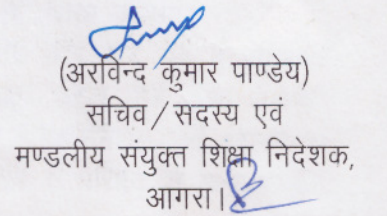 (अरविन्द कुमार पाण्डेय)
सचिव/सदस्य एवं
मण्डलीय संयुक्त शिक्षा निदेशक,
आगरा।